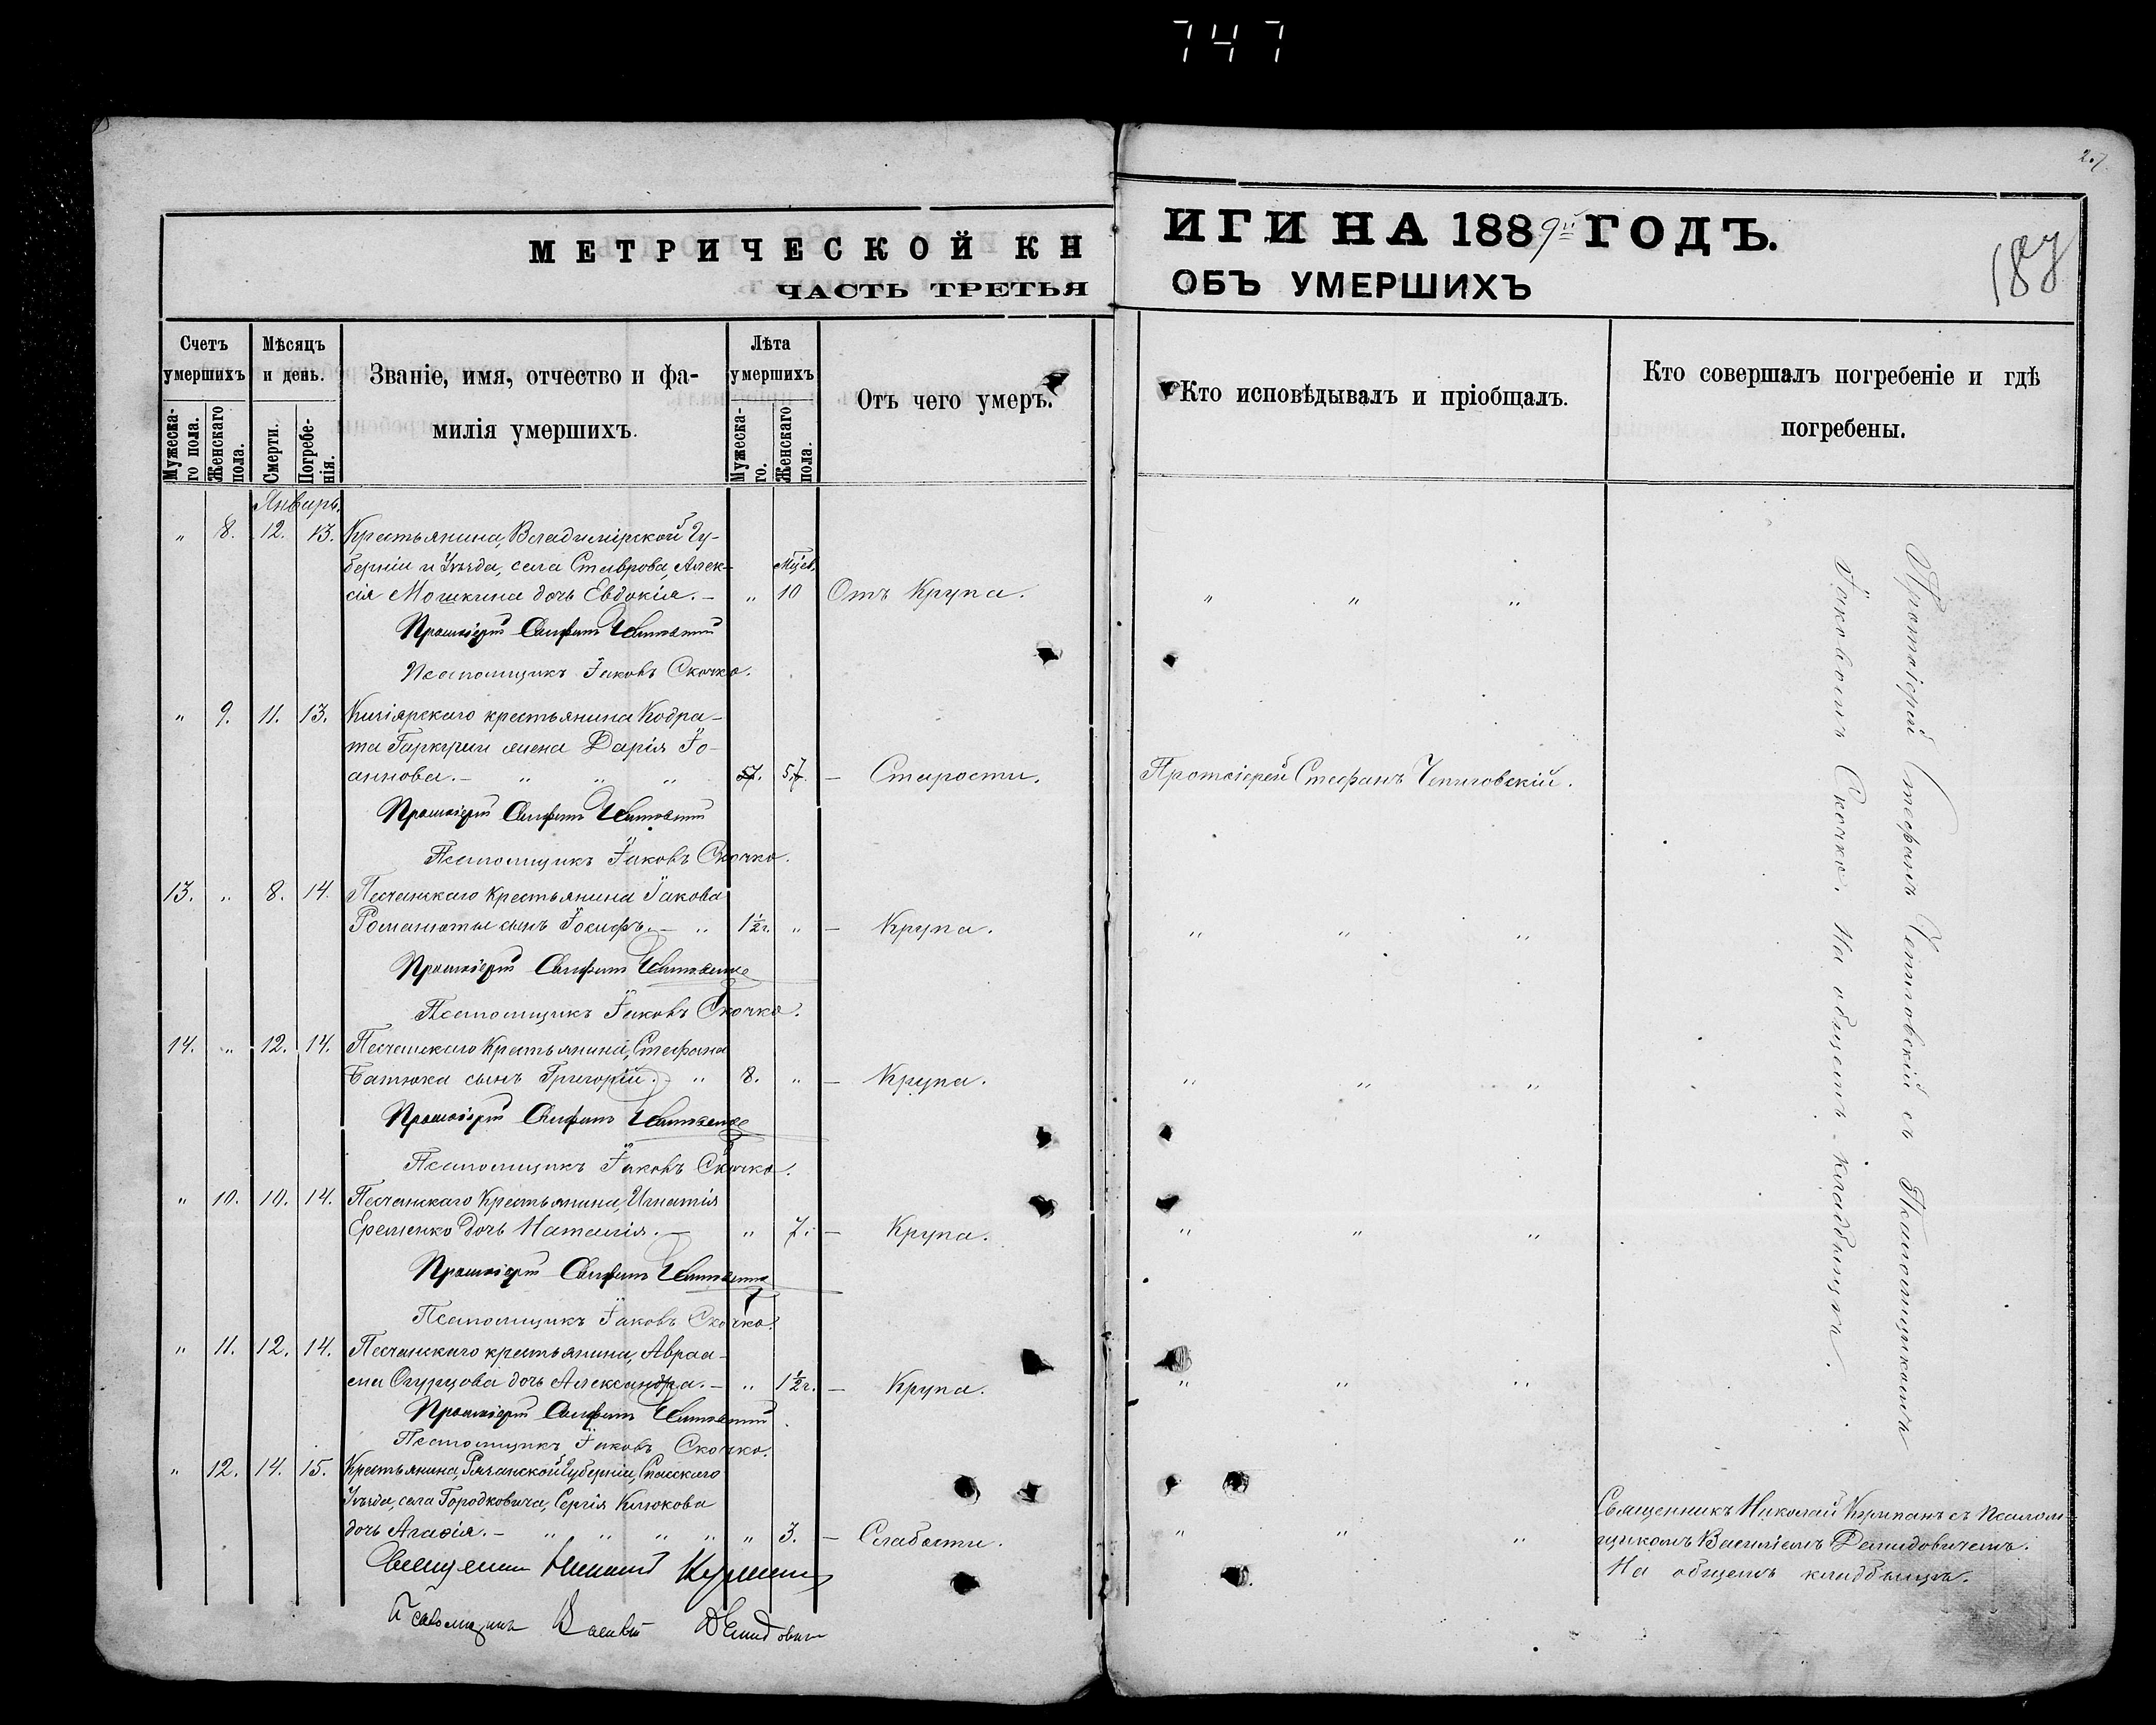 747
27
187
МЕТРИЧЕСКОЙ КН
ИГИ НА 1889й ГОДЪ.
ЧАСТЬ ТРЕТЬЯ
ОБЪ УМЕРШИХЪ
Счетъ умершихъ
Мужеска-го пола.
Женскаго пола.
Мѣсяцъ и день.
Смерти.
Погребе-нія.
Званіе, имя, отчество и фа-
милія умершихъ.
Лѣта умершихъ
Мужеска-го.
Женскаго пола.
Отъ чего умеръ.
Кто исповѣдывалъ и пріобщалъ.
Кто совершалъ погребеніе и гдѣ
погребены.
Январь.
" 8. 12. 13. Крестьянина, Владимірской Гу-
берніи и Уѣзда, села Ставрова, Алек- Мѣсяц.
сія Мошкина дочь Евдокія. — " 10 Отъ Крупа. " " "
Протоіерей Стефанъ
Псаломщикъ Іаковъ Скочко.
" 9. 11. 13. крестьянина Кодра-
та жена Дарія Іо-
аннова. — " " " 57. 57. — Старости. Протоіерей Стефанъ Чепиговскій.
Протоіерей Стефанъ
Псаломщикъ Іаковъ Скочко.
13. " 8. 14. Песчанскаго Крестьянина Іакова
сынъ Іосифъ. — " 1½ г. " — Крупа. " " "
Протоіерей Стефанъ
Псаломщикъ Іаковъ Скочко.
14. " 12. 14. Песчанскаго Крестьянина, Стефана
Батюка сынъ Григорій. " 8. " — Крупа. " " "
Протоіерей Стефанъ
Псаломщикъ Іаковъ Скочко.
" 10. 10. 14. Песчанскаго Крестьянина, Игнатія
Еременко дочь Наталія. — " 7. — Крупа. " " "
Протоіерей Стефанъ
Псаломщикъ Іаковъ Скочко.
" 11. 12. 14. Песчанскаго крестьянина, Авраа-
ма Огурцова дочь Александра. — " 1½ г. — Крупа. " " "
Протоіерей Стефанъ
Псаломщикъ Іаковъ Скочко.
" 12. 14. 15. Крестьянина, Рязанской Губерніи, Спасскаго
Уѣзда, села Городковича, Сергія Клюкова
дочь Агафія. — " " " " " 3. — Слабости. " " "
Священникъ Николай Курпанъ
Псаломщикъ Василій Демидовичъ
Протоіерей Стефанъ Чепиговскій съ Псаломщикомъ
Іаковомъ Скочко. На общемъ кладбищѣ.
Священникъ Николай Курпанъ съ Псалом
щикомъ Василіемъ Демидовичемъ.
На общемъ кладбищѣ.